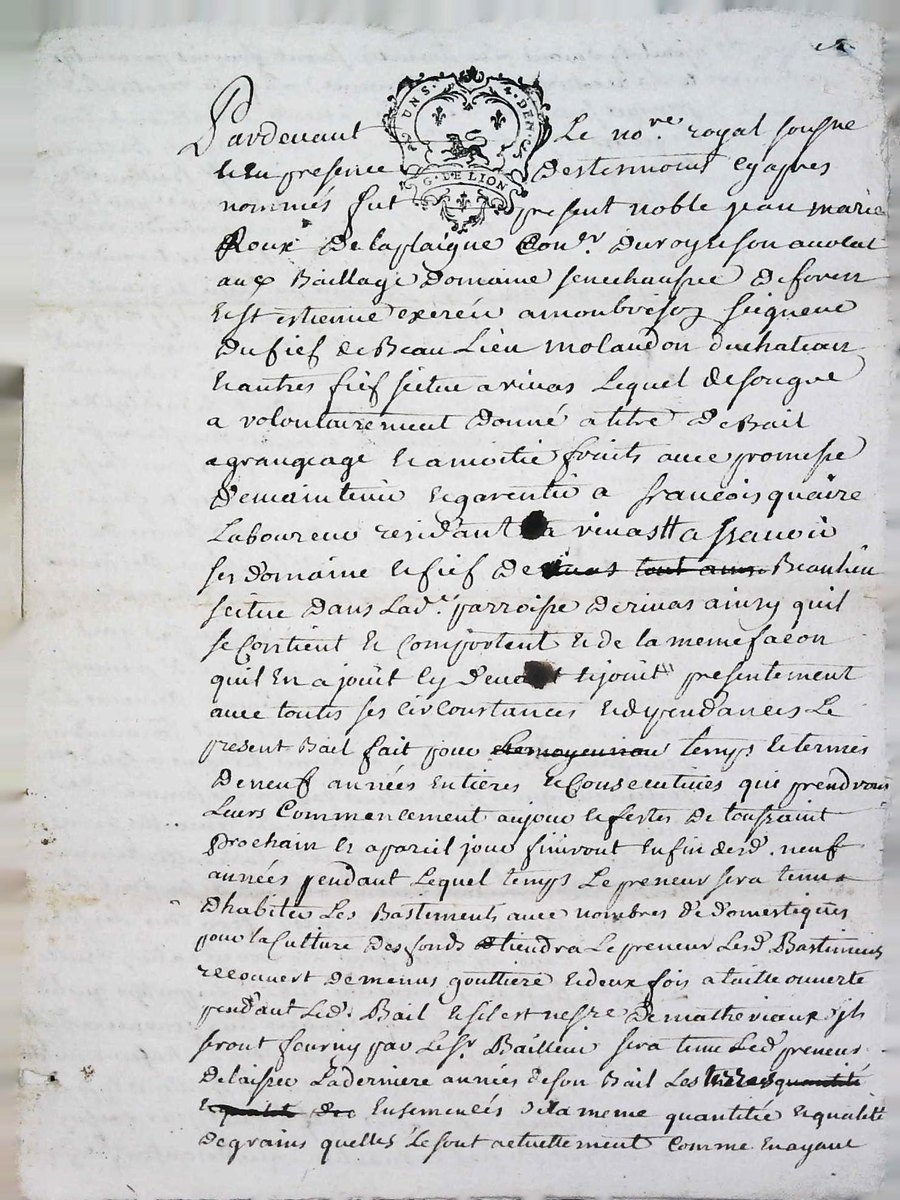 UNS. 4. DEN.
G. DE LION
Pardevant Le no.re royal sousne
et en presence des temoins cy apres
nommés fut present noble jean marie
Roux Delaplaigne Con.er du roy et son avocat
aux Baillage Domaine senechaussee de forest
et st estienne exercée a monbrison seigneur
Du fief de Beau Lieu molaudon duchateau
et autres fief scitue a rivas Lequel de son gré
a volontairement Donné a titre De Bail
a grangeage et a moitié fruits avec promesse
De maintenir et garentir a francois quaire
Laboureur residant a rivas a scavoir
ses Domaine et fief de Beaulieu
scitue Dans Lad.e parroisse De rivas ainsy quil
se Contient et Comportent et de la meme facon
quil en a joüit cy devant et joüit presentement
avec toutes ses circonstances et dependances Le
present Bail fait pour temps et termes
De neuf années entieres et Consecutives qui prendront
Leurs Commencement au jour et festes De toussaint
prochain et a pareil jour finiront en fin desd. neuf
années pendant Lequel temps Le preneur sera tenu
Dhabiter Les Bastiments avec nombres de domestiques
pour la Culture Des fonds tiendra Le preneur Lesd. Bastiments
recouvert De menus gouttiere et deux fois a taille ouverte
pendant Led. Bail et sil est De matheriaux jls
seront fourny par Le Sr. Bailleur sera tenu Led. preneur
De laisser La derniere années de son Bail Les terres quantité
Ensemencés de la meme quantitée et qualité
De grains quelles Le sont actuellement Comme en ayant